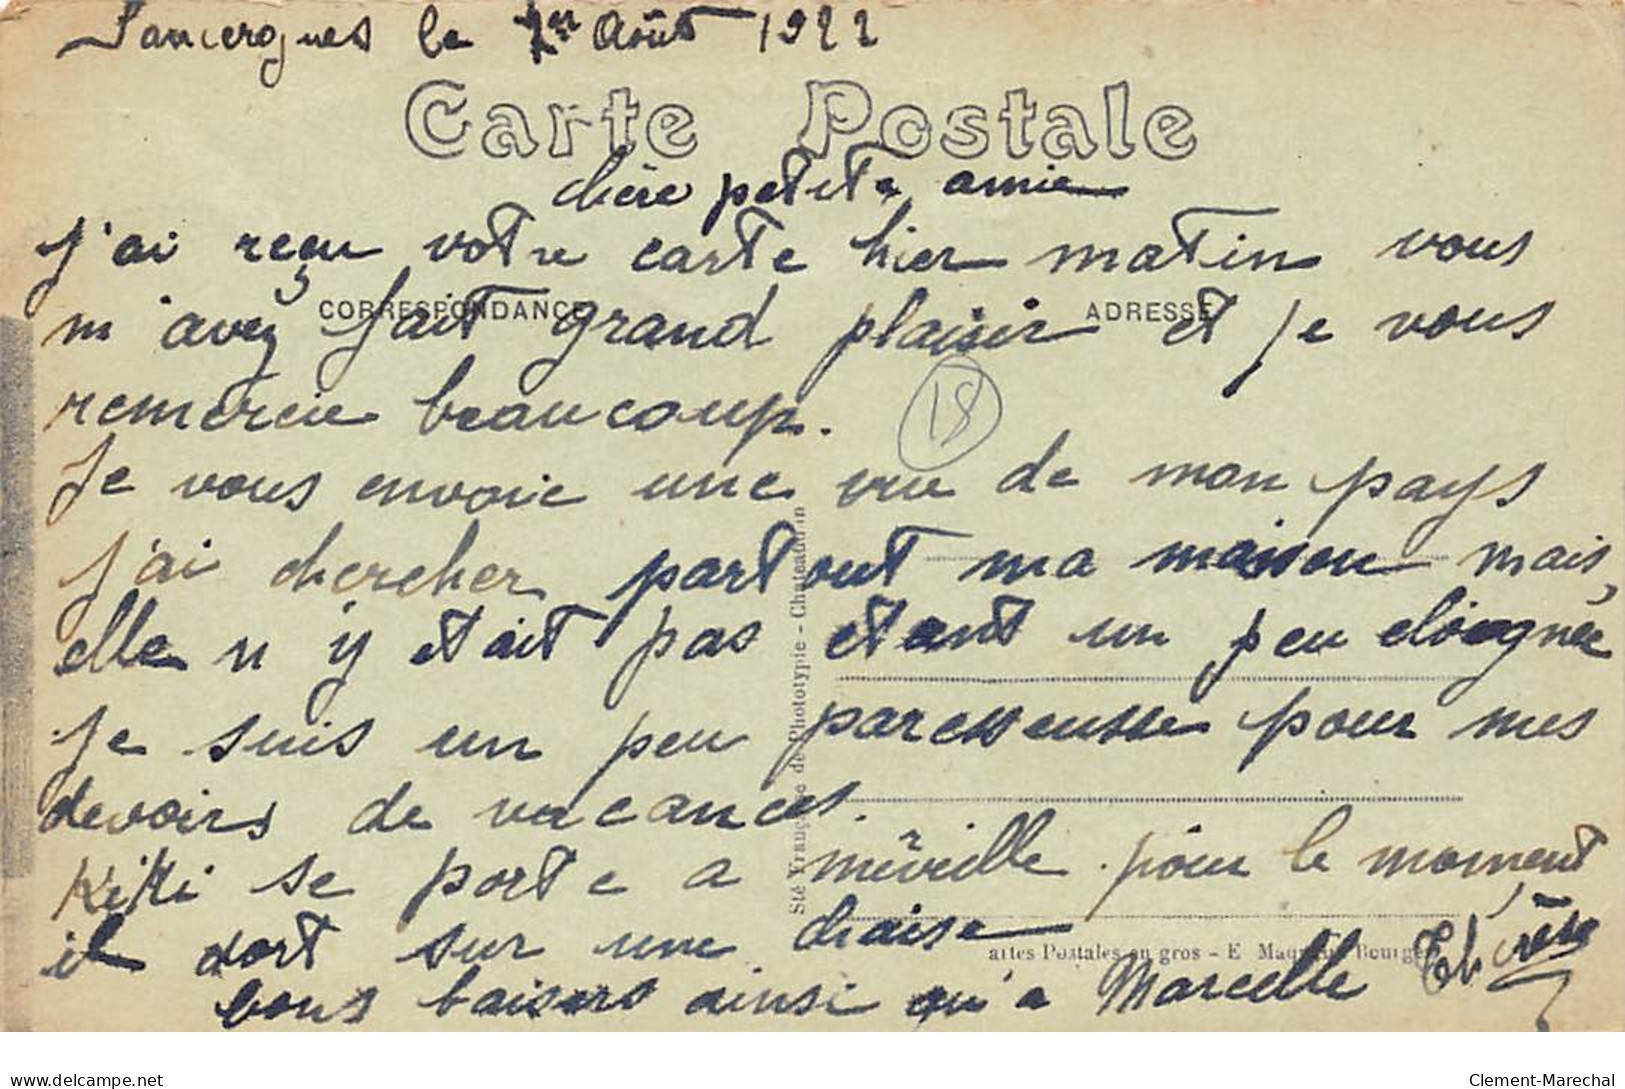 Sancergues le 1er Août 1922
Carte Postale
chère petite amie
J'ai reçu votre carte hier matin vous
CORRESPONDANCE
ADRESSE
m'avez fait grand plaisir et je vous
remercie beaucoup.
18
Je vous envoie une vue de mon pays
j'ai chercher partout ma maison mais
elle n'y était pas etant un peu eloignée
Je suis un peu paresseusse pour mes
devoirs de vacances.
Kiki se porte a mêrveille. pour le moment
il dort sur une chaise
bons baisers ainsi qu'a Marcelle
Sté Française de Phototypie - Chateaudun
artes Postales en gros - E Bourges
Clement-Marechal
www.delcampe.net